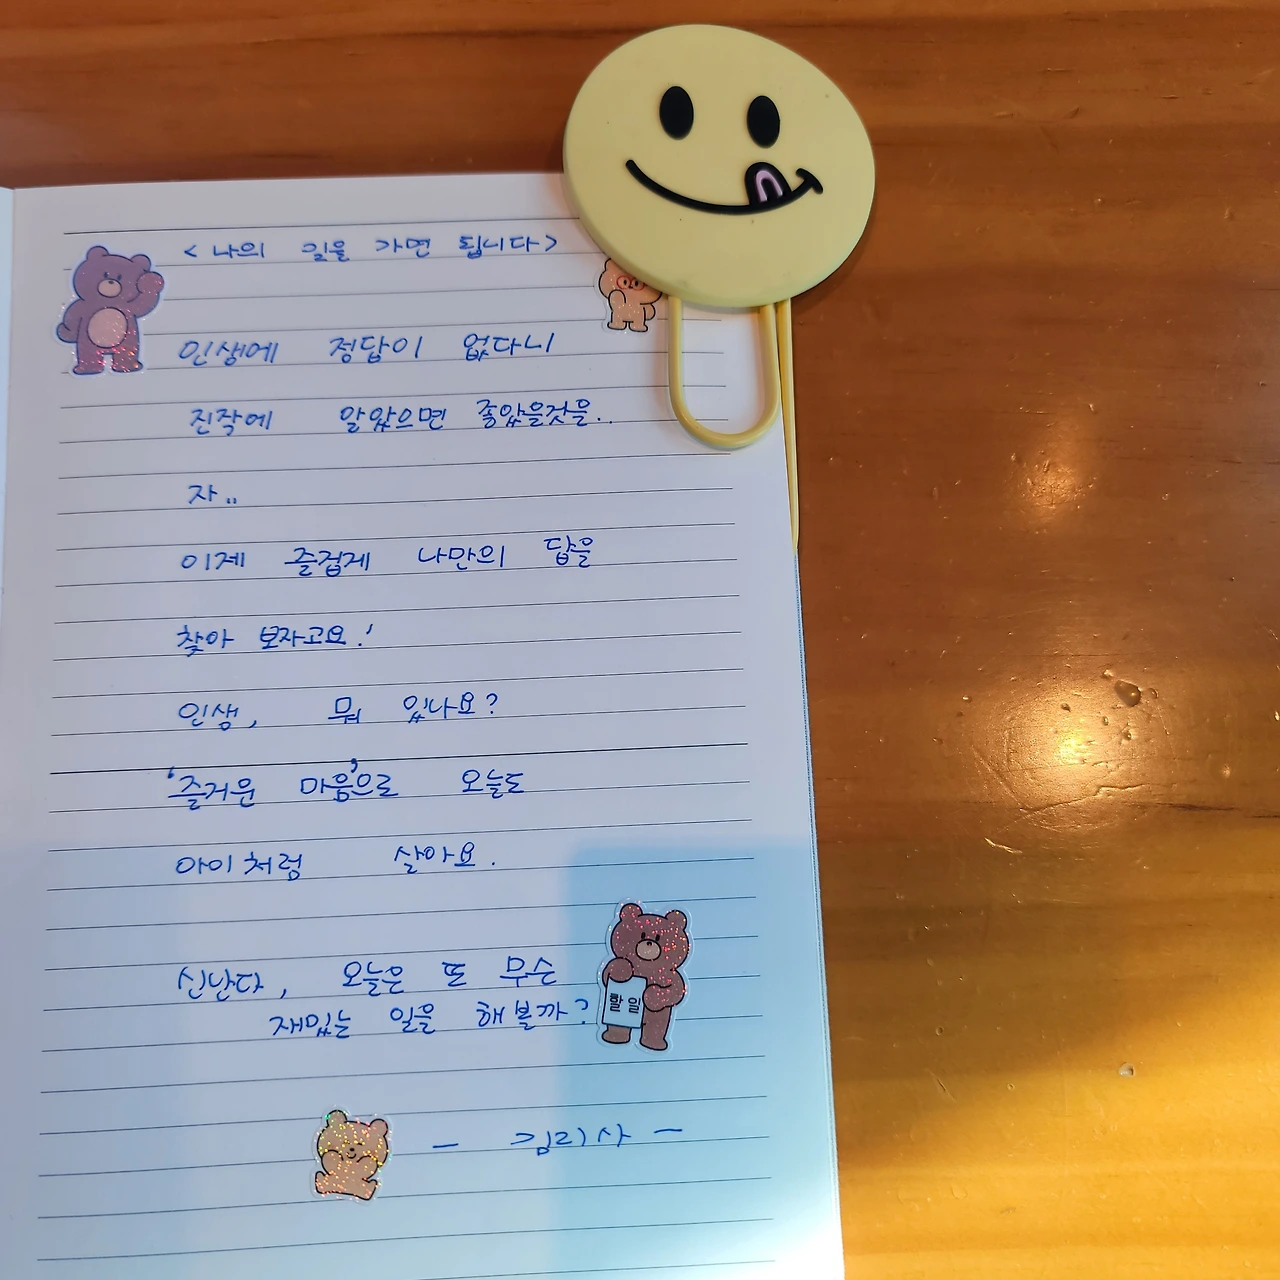 <나의 길을 가면 됩니다>
인생에 정답이 없다니
진작에 알았으면 좋았을것을..
자..
이제 즐겁게 나만의 답을
찾아 보자고요!
인생, 뭐 있나요?
'즐거운 마음'으로 오늘도
아이처럼 살아요.
신난다, 오늘은 또 무슨
재밌는 일을 해볼까?
할 일
- 김리사 -